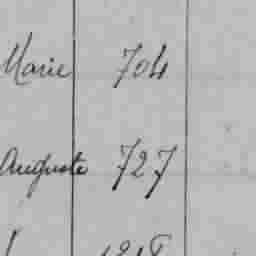 Marie 704
Auguste 727